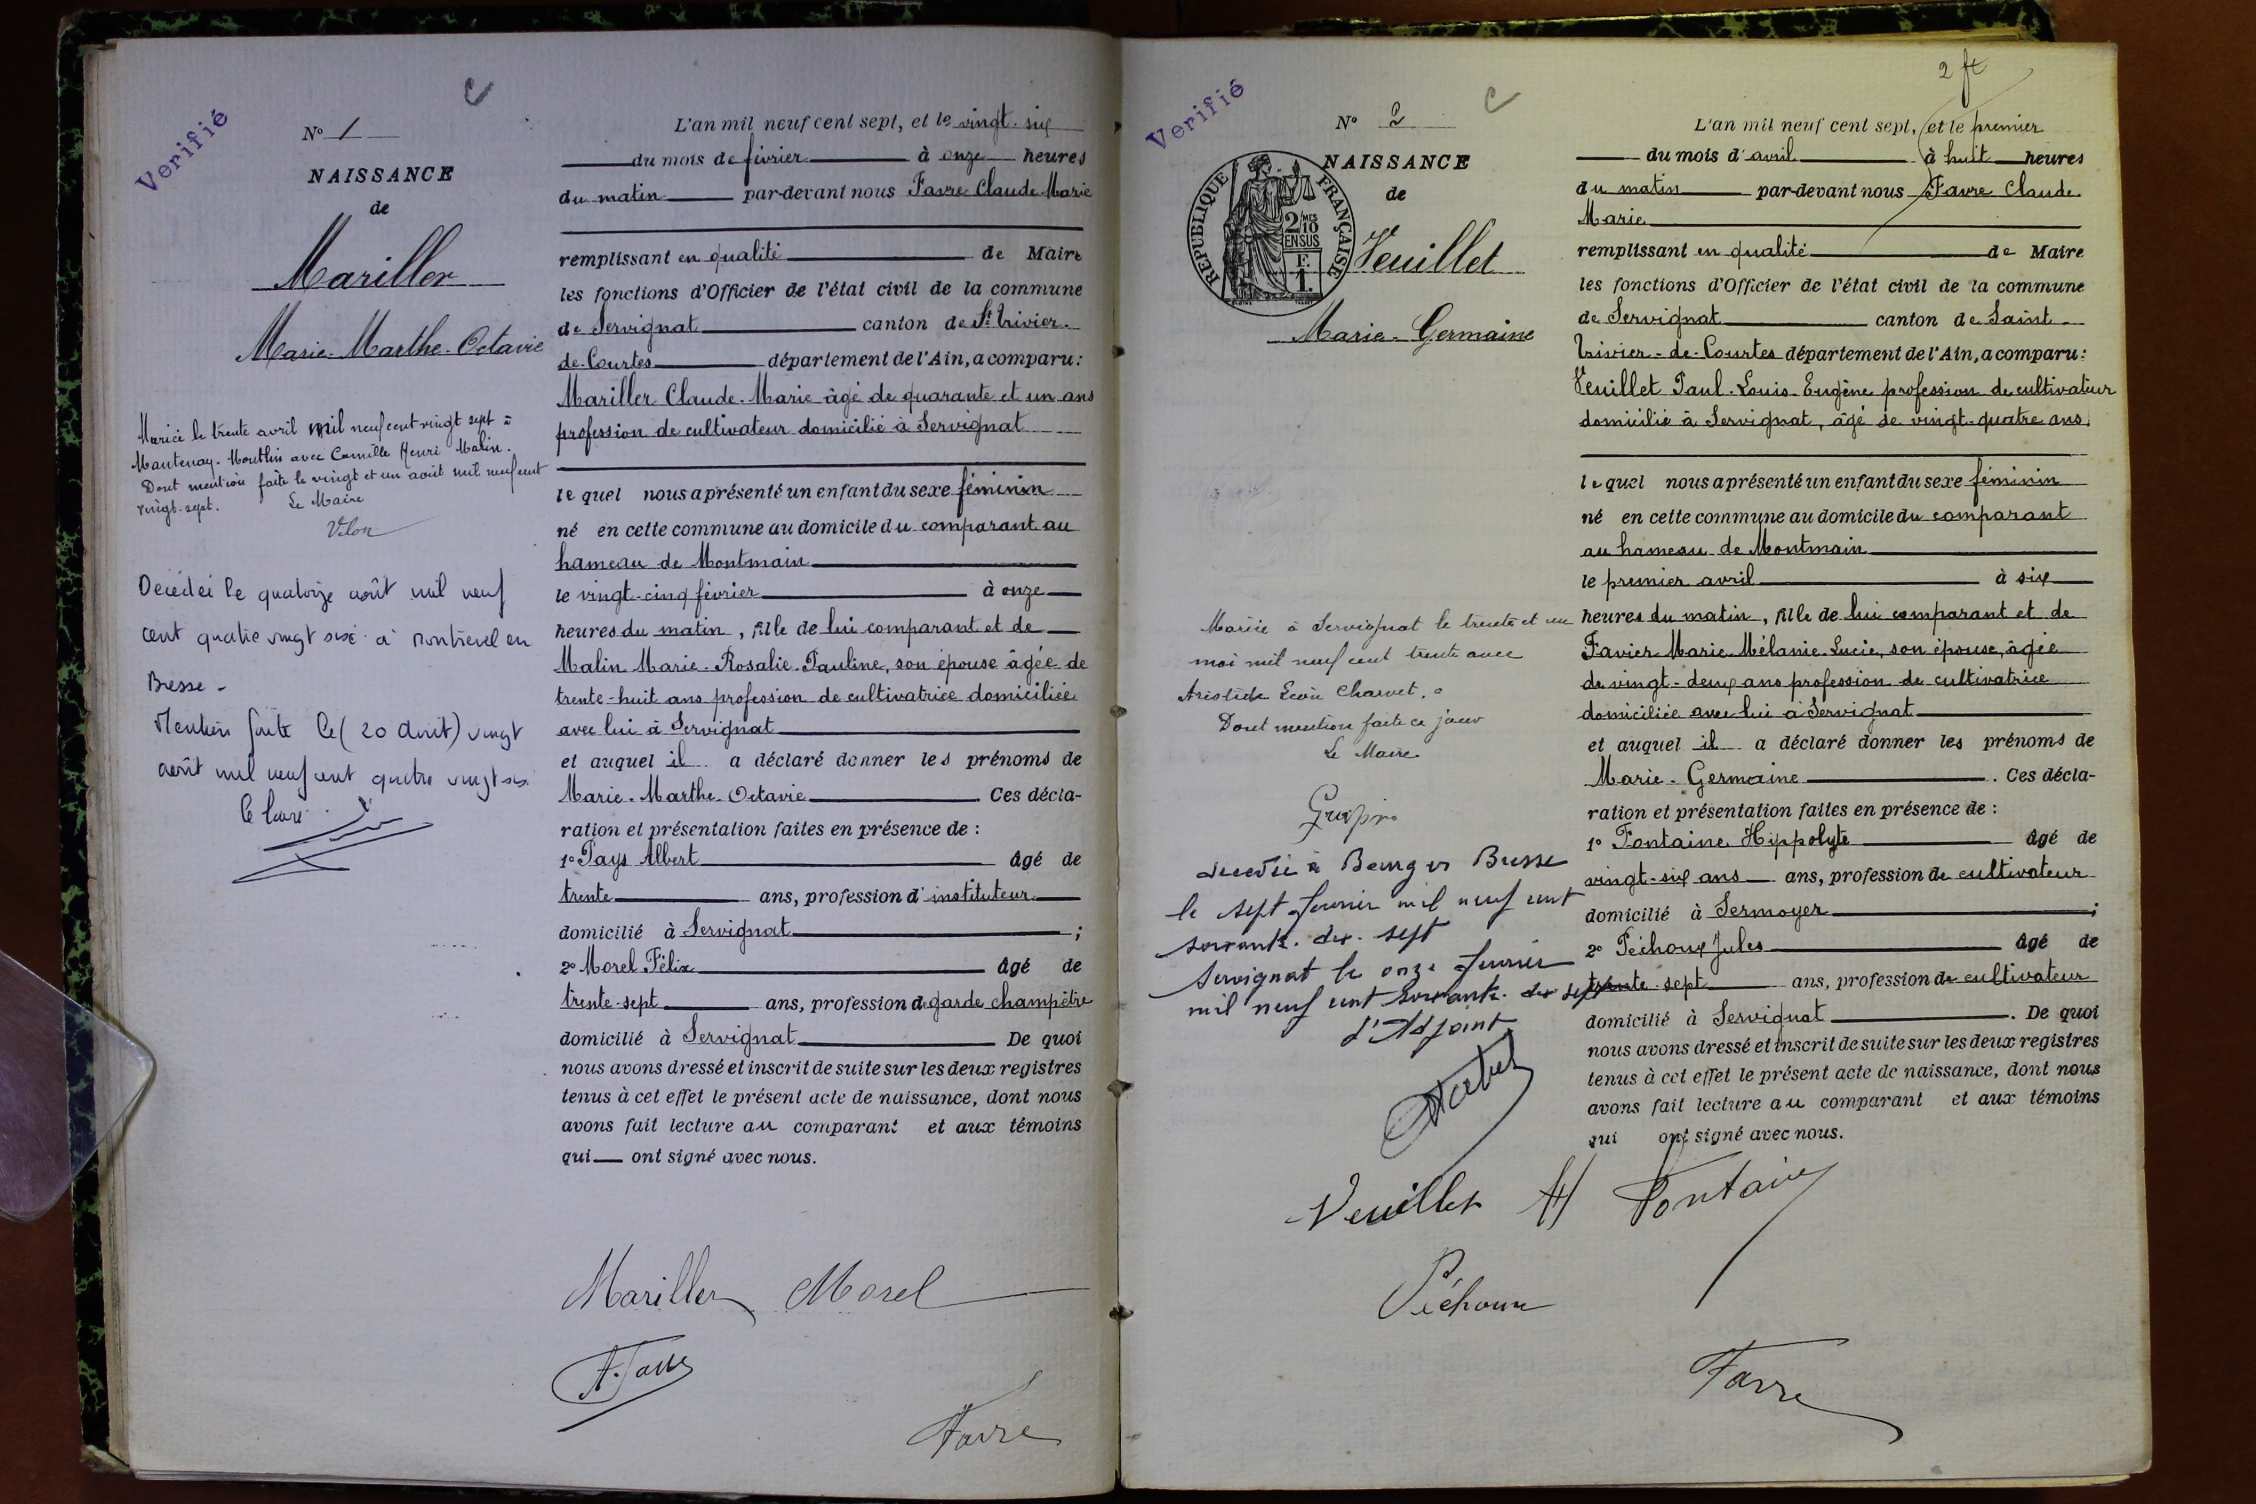 Verifié
C
N° 1
NAISSANCE
de
Mariller
Marie-Marthe-Octavie
Mariée le trente avril mil neuf cent vingt sept à
Mantenay-Montlin avec Camille Henri Malin.
Dont mention faite le vingt et un août mil neuf cent
vingt-sept. Le Maire
Décédée le quatorze août mil neuf
cent quatre vingt six à Montrevel en
Bresse -
Mention faite le (20 août) vingt
août mil neuf cent quatre vingt six
L'an mil neuf cent sept, et le vingt-six
du mois de février à onze heures
du matin par-devant nous Favre Claude Marie
remplissant en qualité de Maire
les fonctions d'Officier de l'état civil de la commune
de Servignat canton de St Trivier-
de-Courtes département de l'Ain, a comparu:
Mariller Claude-Marie âgé de quarante et un ans
profession de cultivateur domicilié à Servignat
le quel nous a présenté un enfant du sexe féminin
né en cette commune au domicile du comparant au
hameau de Montmain
le vingt-cinq février à onze
heures du matin, fille de lui comparant et de
Malin Marie-Rosalie-Pauline, son épouse âgée de
trente-huit ans profession de cultivatrice domiciliée
avec lui à Servignat
et auquel il a déclaré donner les prénoms de
Marie-Marthe-Octavie Ces décla-
ration et présentation faites en présence de :
1° Pays Albert âgé de
trente ans, profession d'instituteur
domicilié à Servignat ;
2° Morel Félix âgé de
trente-sept ans, profession de garde champêtre
domicilié à Servignat De quoi
nous avons dressé et inscrit de suite sur les deux registres
tenus à cet effet le présent acte de naissance, dont nous
avons fait lecture au comparant et aux témoins
qui ont signé avec nous.
Mariller Morel
Favre
2 ft
Verifié
C
N° 2
NAISSANCE
de
REPUBLIQUE FRANÇAISE
2/10 MES
EN SUS
F.
1.
Veuillet
Marie-Germaine
Mariée à Servignat le trente et un
mai mil neuf cent trente avec
Aristide Léon Charvet.
Dont mention faite ce jour
Le Maire
décédée à Bourg en Bresse
le sept février mil neuf cent
soixante-dix-sept
Servignat le onze février
mil neuf cent soixante-dix sept
L'Adjoint
L'an mil neuf cent sept, et le premier
du mois d'avril à huit heures
du matin par-devant nous Favre Claude
Marie
remplissant en qualité de Maire
les fonctions d'Officier de l'état civil de la commune
de Servignat canton de Saint-
Trivier-de-Courtes département de l'Ain, a comparu:
Veuillet Paul-Louis-Eugène profession de cultivateur
domicilié à Servignat, âgé de vingt-quatre ans.
le quel nous a présenté un enfant du sexe féminin
né en cette commune au domicile du comparant
au hameau de Montmain
le premier avril à six
heures du matin, fille de lui comparant et de
Favier Marie-Mélanie-Lucie, son épouse, âgée
de vingt-deux ans profession de cultivatrice
domiciliée avec lui à Servignat
et auquel il a déclaré donner les prénoms de
Marie-Germaine. Ces décla-
ration et présentation faites en présence de :
1° Fontaine Hippolyte âgé de
vingt-six ans ans, profession de cultivateur
domicilié à Sermoyer ;
2° Péchoux Jules âgé de
trente-sept ans, profession de cultivateur
domicilié à Servignat. De quoi
nous avons dressé et inscrit de suite sur les deux registres
tenus à cet effet le présent acte de naissance, dont nous
avons fait lecture au comparant et aux témoins
qui ont signé avec nous.
Veuillet H Fontaine
Péchoux
Favre